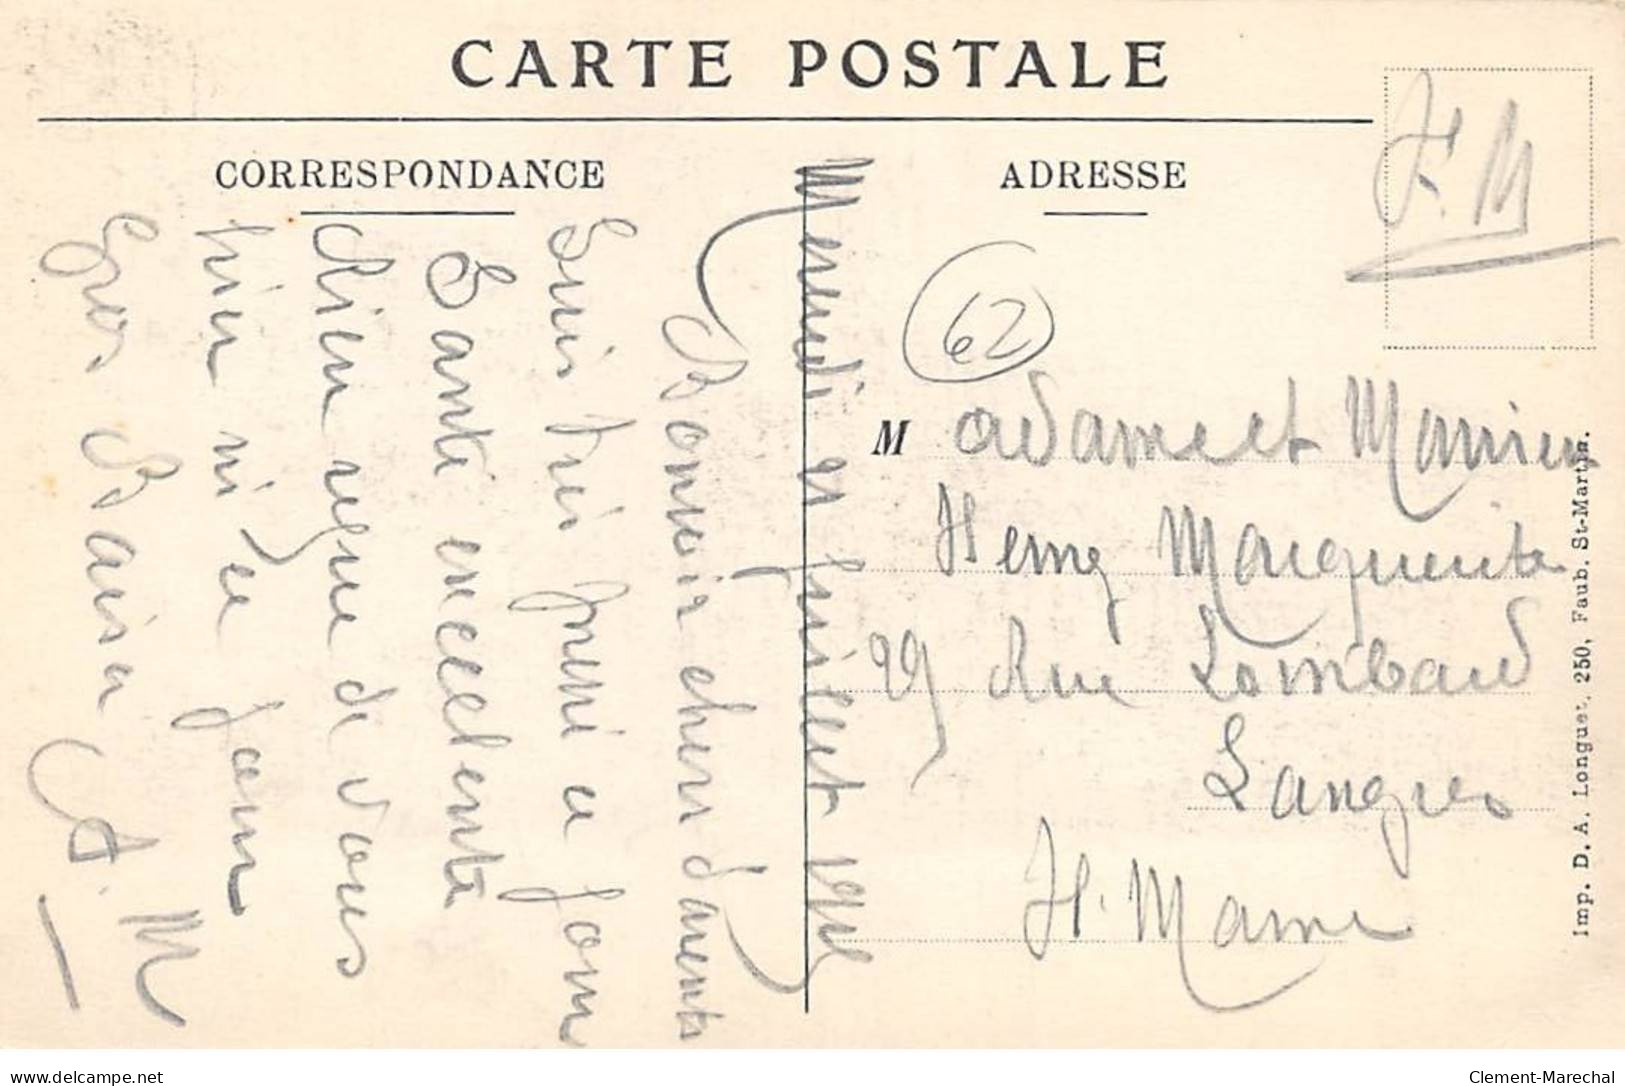 CARTE POSTALE
CORRESPONDANCE
ADRESSE
F. M
62
Mercredi 21 Juillet
Bonsoir chers parents
Suis très pressé ce jour
Santé excellente
Rien reçu de vous
hier ni ce jour
Gros Baiser
A. M
M adame et Monsieur
Henry Marguerite
29 Rue Lombard
Langres
H. Marne
Imp. D. A. Longuet, 250, Faub. St-Martin.
Clement-Marechal
www.delcampe.net